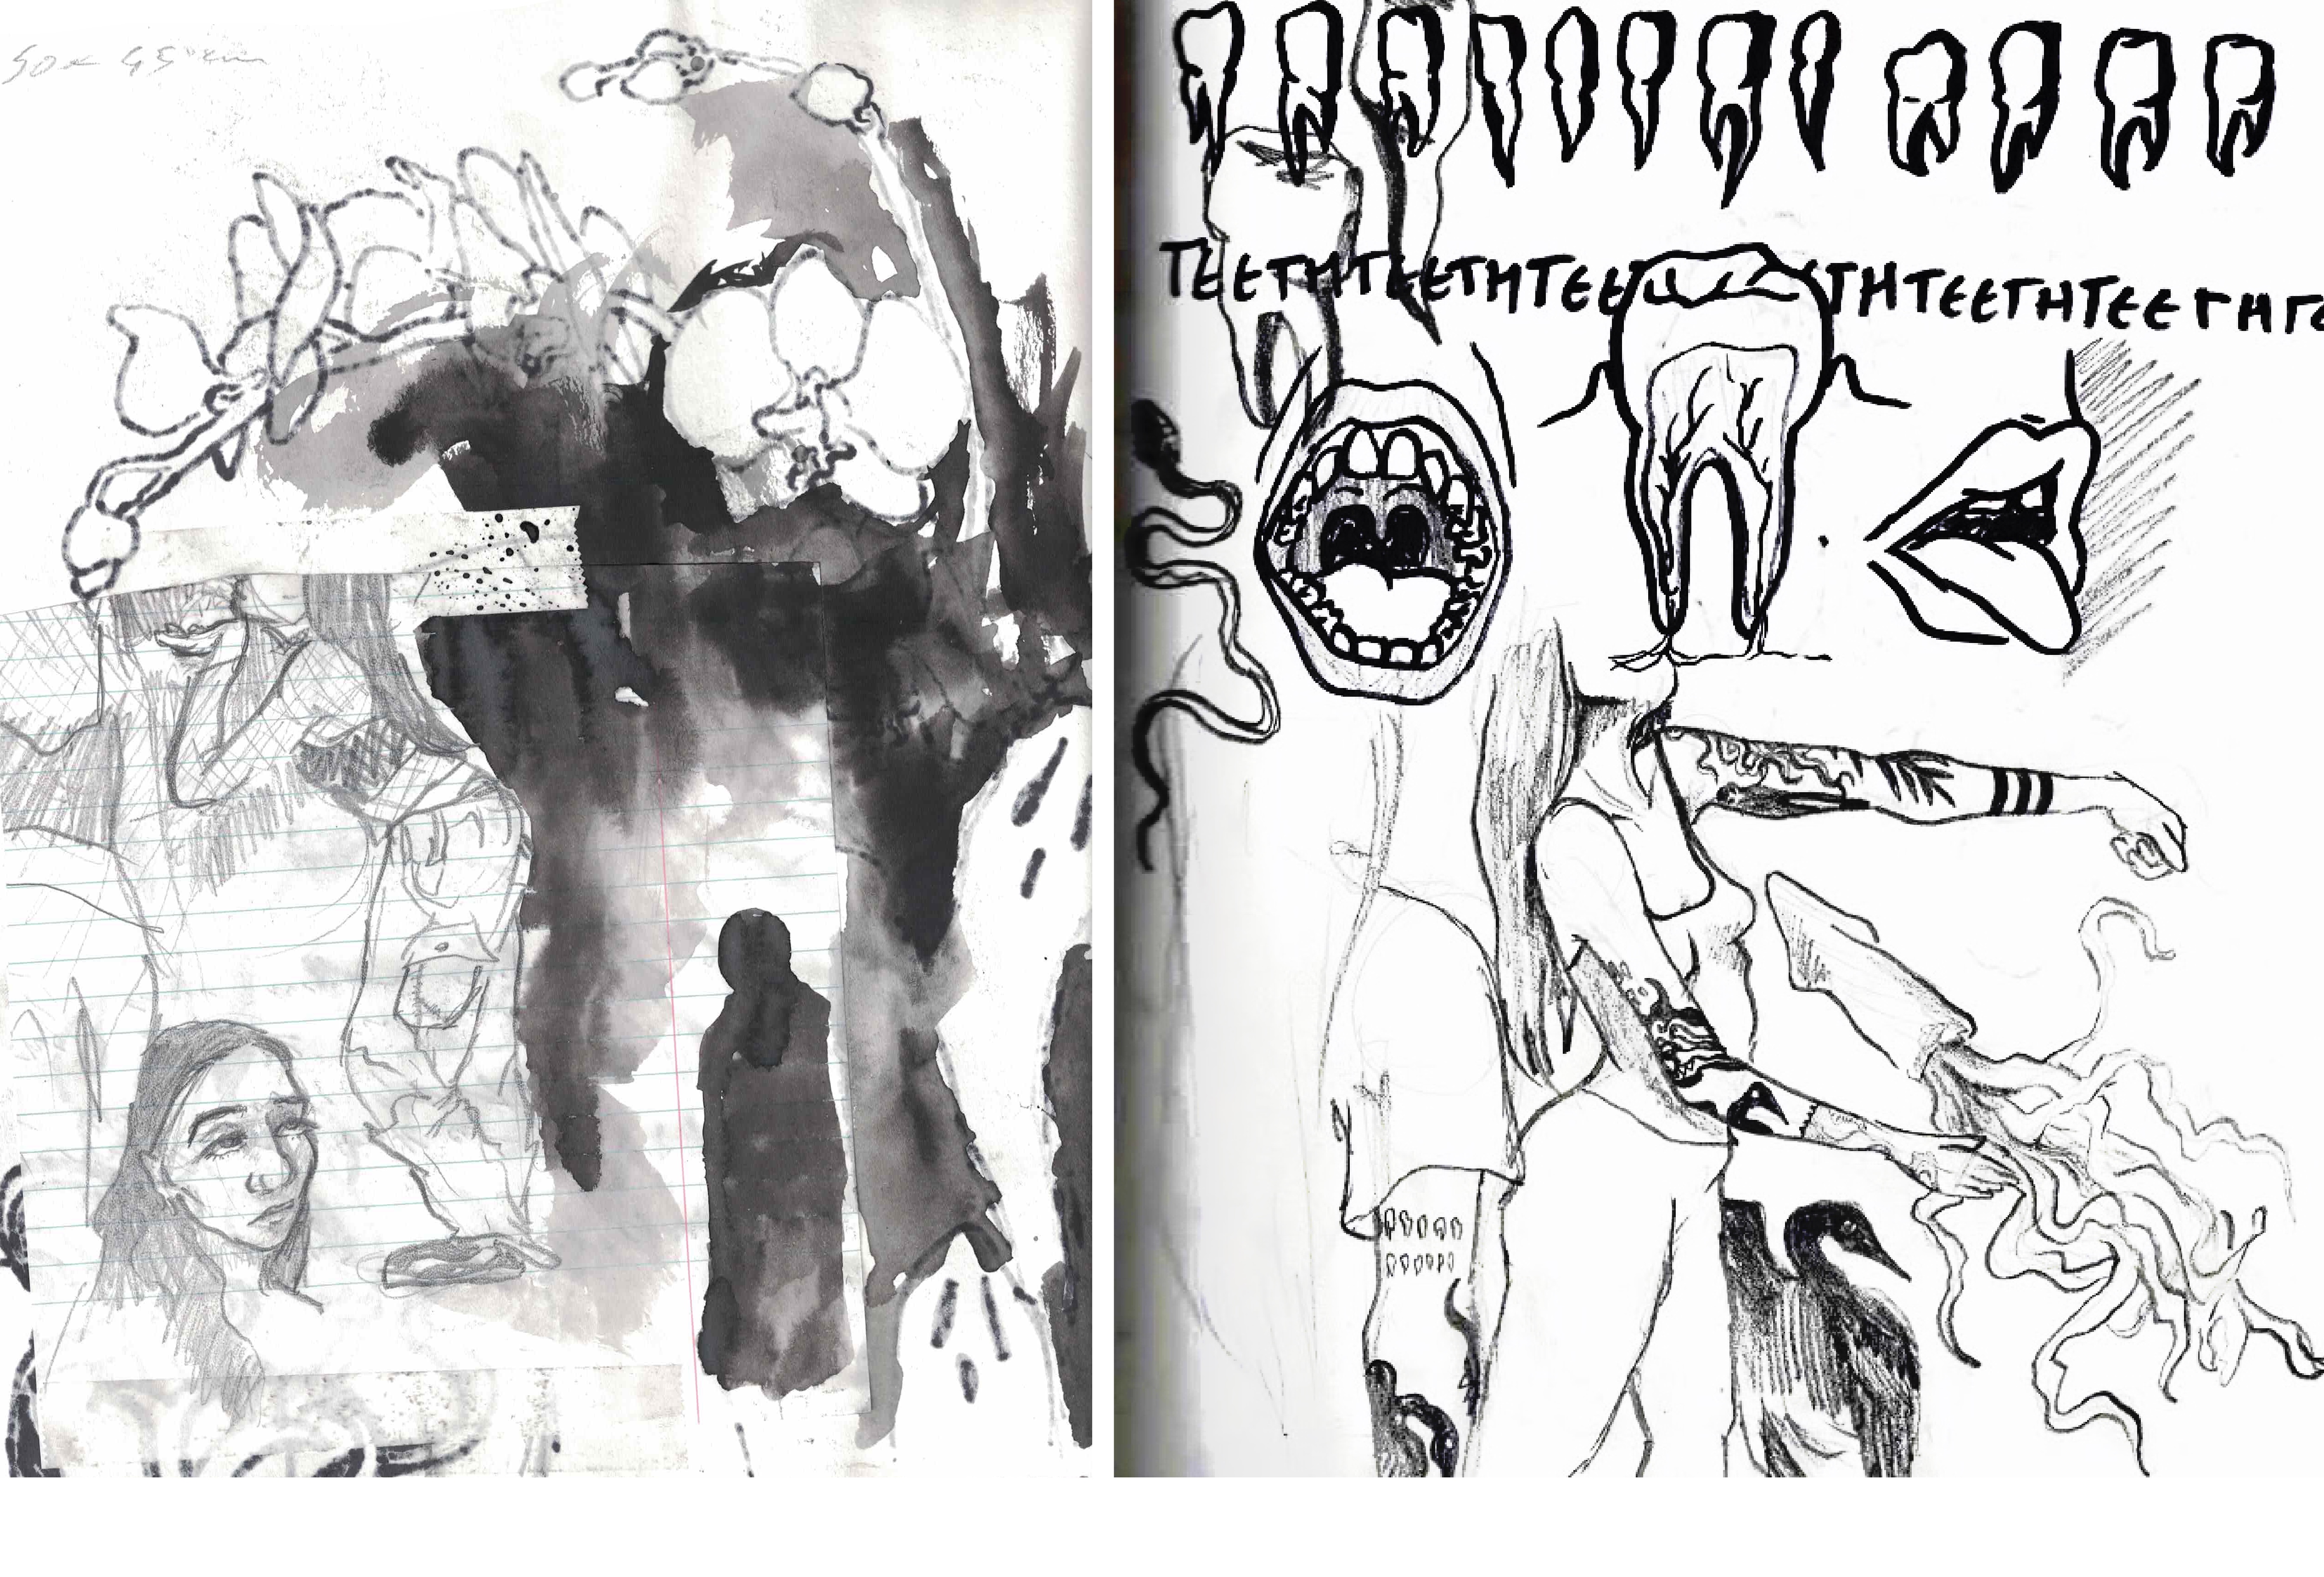 50 x 45 cm
TEETHTEETHTEE THTEETHTEETHTE